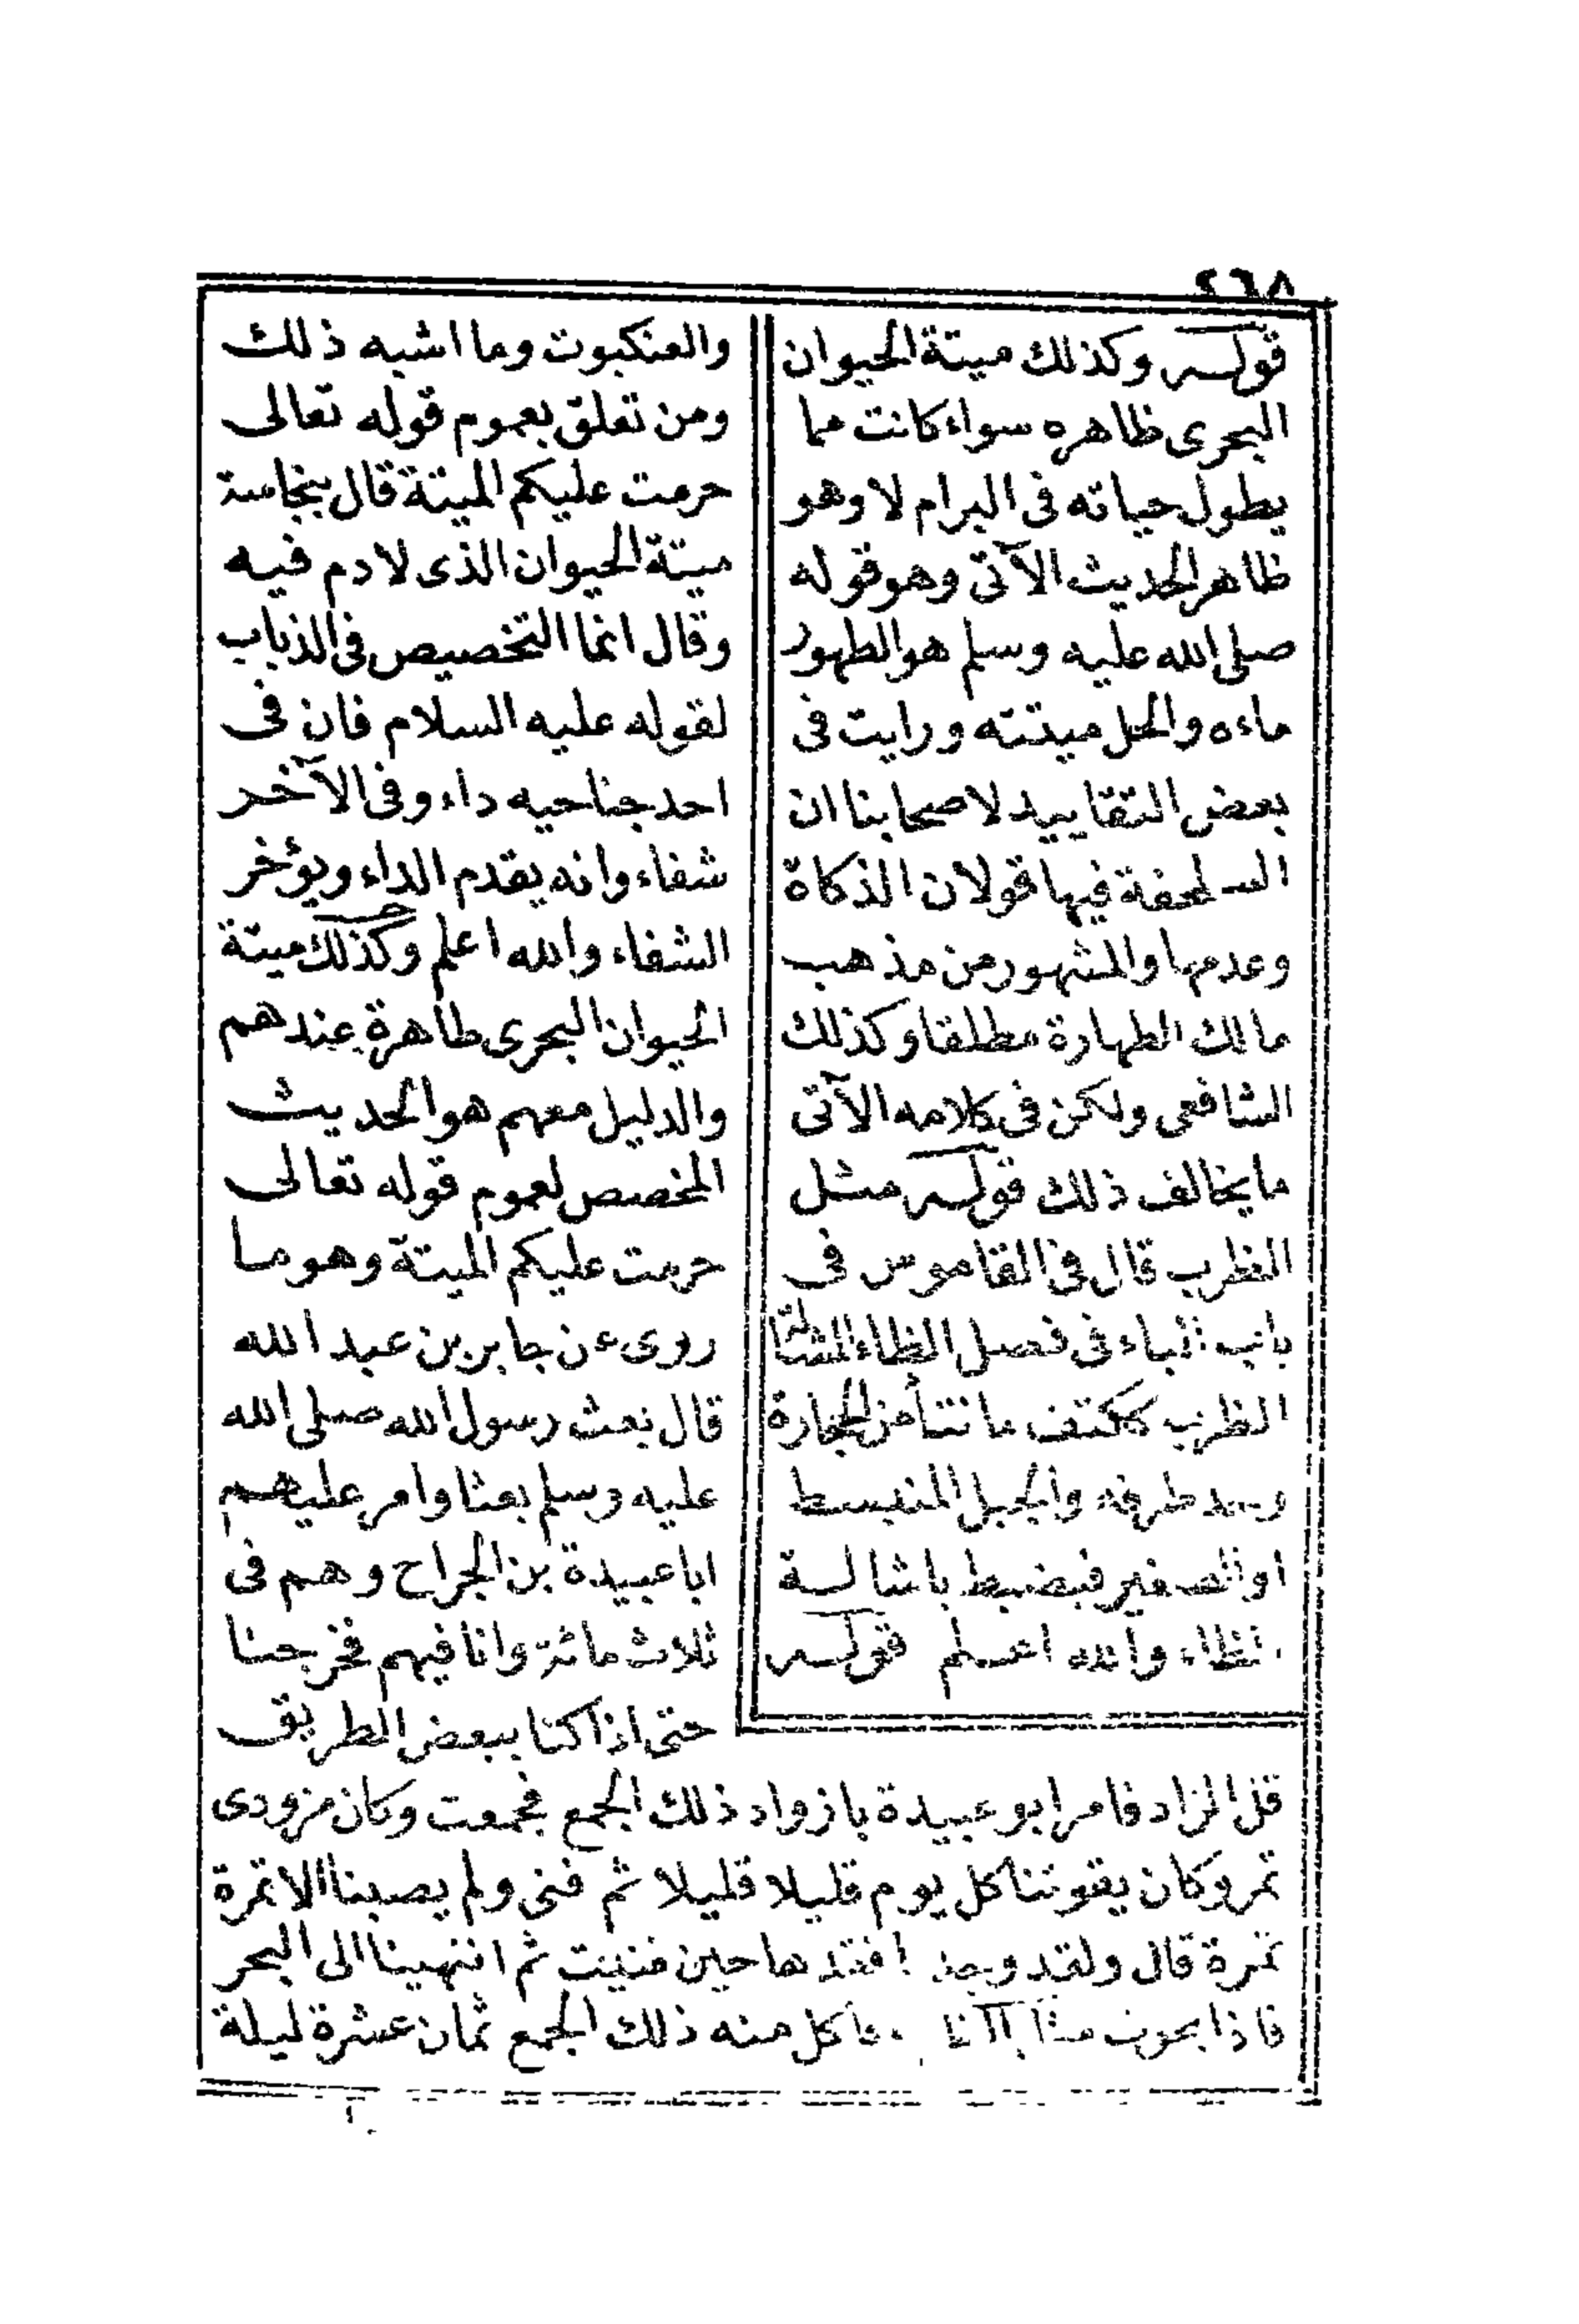 ٢٦٨
قوله وكذلك ميتة الحيوان
البحرى ظاهره سواء كانت مما
يطول حياته فى البرام لا وهو
ظاهر الحديث الآتى وهو قوله
صلى الله عليه وسلم هو الطهور
ماءه والحل ميتته ورايت فى
بعض التقاييد لاصحابنا ان
السلحفة فيها قولان الذكاة
وعدمها والمشهور من مذهب
مالك الطهارة مطلقا وكذلك
الشافعى ولكن فى كلامه الآتى
ما يخالف ذلك قوله مثل
الظرب قال فى القاموس فى
باب الباء فى فصل الظاء المشالة
الظرب ككتف ما نتأ من الحجارة
وحد طرفه والجبل المنبسط
او الصغير فيضبط باشالة
الظاء والله اعلم قوله
والعنكبوت وما اشبه ذلك
ومن تعلق بعموم قوله تعالى
حرمت عليكم الميتة قال بنجاسة
ميتة الحيوان الذى لا دم فيه
وقال انما التخصيص فى الذباب
لقوله عليه السلام فان فى
احد جناحيه داء وفى الآخر
شفاء وانه يقدم الداء ويؤخر
الشفاء والله اعلم وكذلك ميتة
الحيوان البحرى طاهرة عندهم
والدليل معهم هو الحديث
المخصص لعموم قوله تعالى
حرمت عليكم الميتة وهو ما
روى عن جابر بن عبد الله
قال بعث رسول الله صلى الله
عليه وسلم بعثا وامر عليهم
ابا عبيدة بن الجراح وهم فى
ثلاث مائة وانا فيهم فخرجنا
حتى اذا كنا ببعض الطريق
قل الزاد فامر ابو عبيدة بازواد ذلك الجمع فجمعت وكان مزودى
تمر وكان يقوتنا كل يوم قليلا قليلا ثم فنى ولم يصبنا الا تمرة
تمرة قال ولقد وجد افقدها حين فنيت ثم انتهينا الى البحر
فاذا بحوت فاكل منه ذلك الجمع ثمان عشرة ليلة